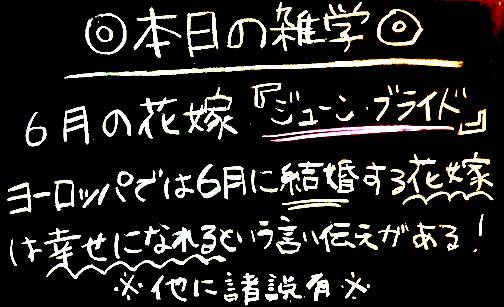 ◎本日の雑学◎
6月の花嫁『ジューン・ブライド』
ヨーロッパでは6月に結婚する花嫁
は幸せになれるという言い伝えがある!
※他に諸説有※